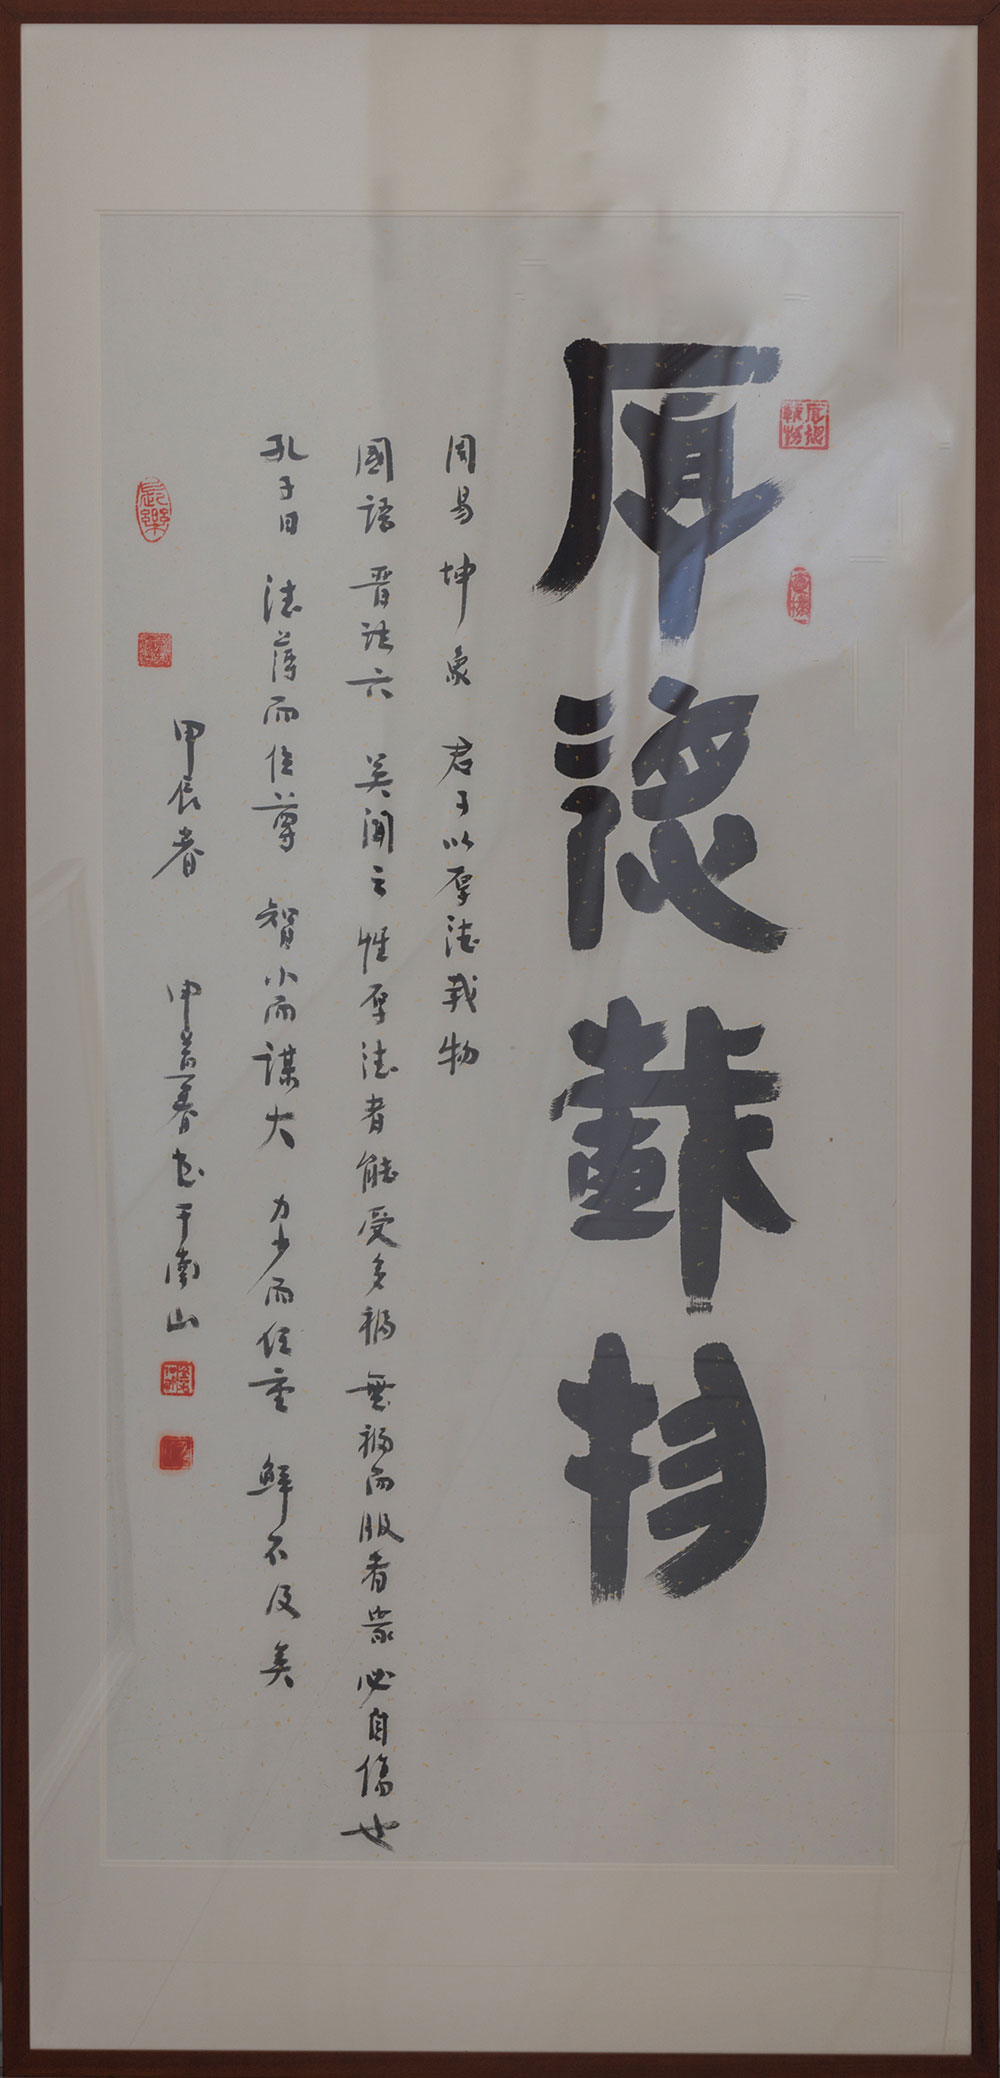 厚德載物
厚德載物
周易 坤 象 君子以厚德載物
國語 晋語六 吴聞之 惟厚德者能受多福 無福而服者衆 必自傷也
孔子曰 德薄而位尊 智小而謀大 力少而任重 鮮不及矣
長樂
甲辰春 书于南山